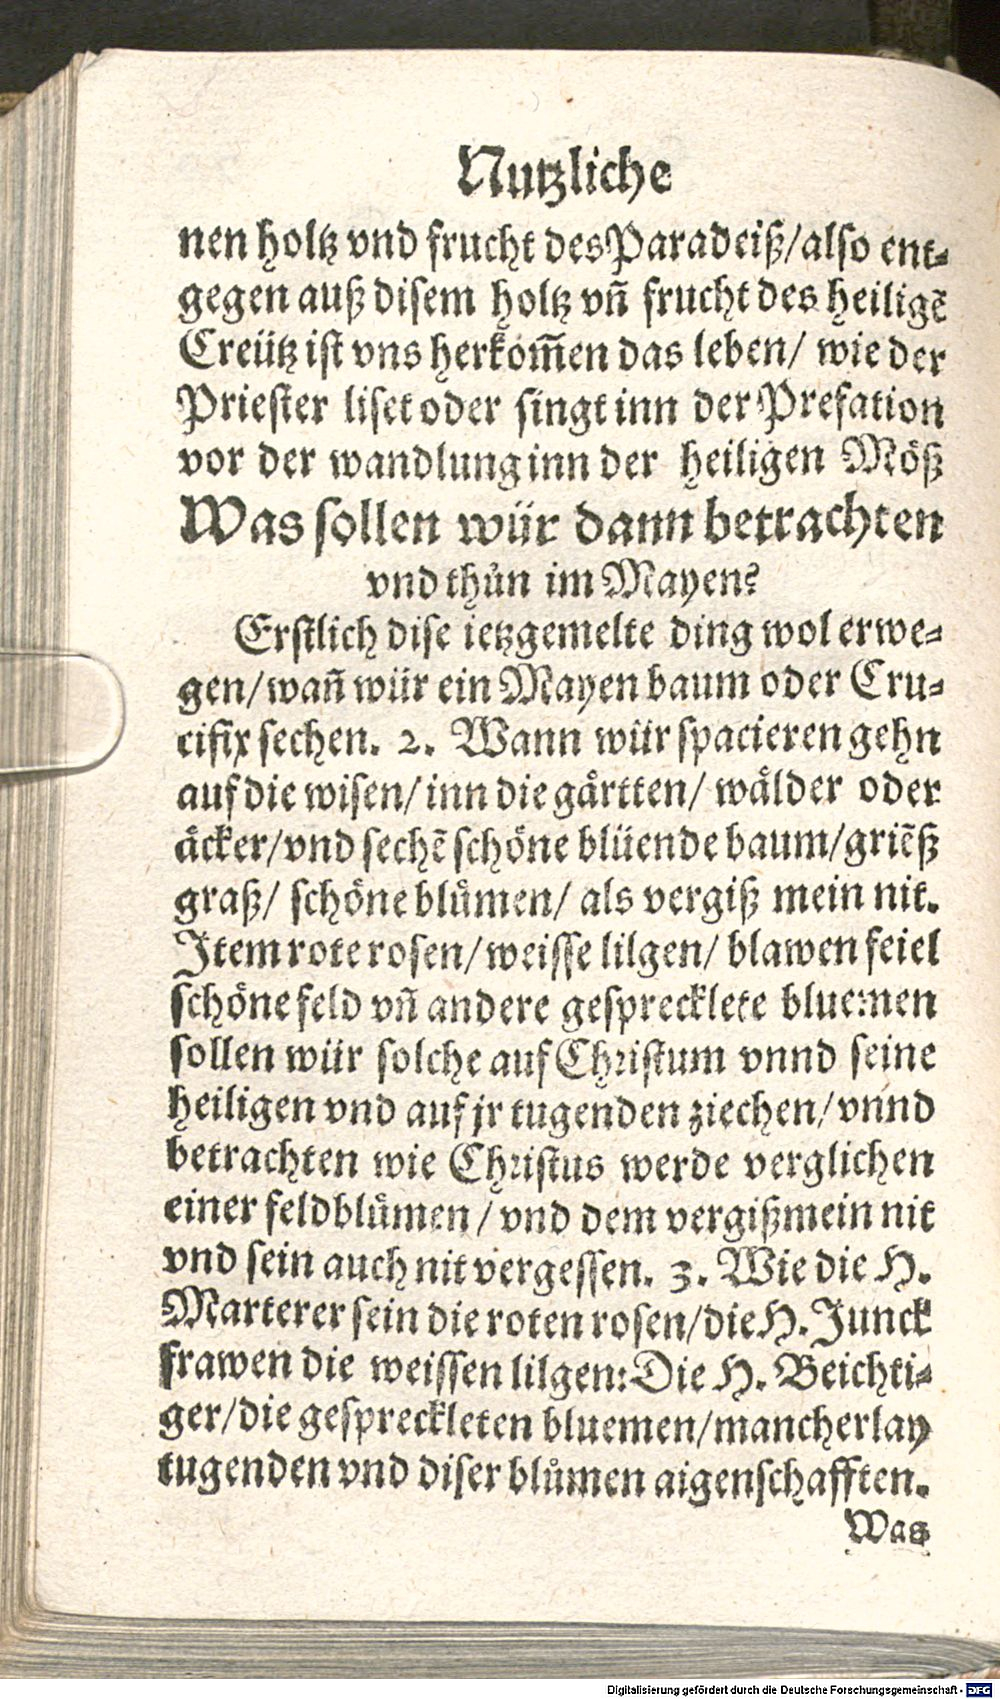 Nutzliche
nen holtz vnd frucht des Paradeiß/also ent-
gegen auß disem holtz vñ frucht des heiligẽ
Creütz ist vns herkom̃en das leben/ wie der
Priester liset oder singt inn der Prefation
vor der wandlung inn der heiligen Möß
Was sollen wür dann betrachten
vnd thůn im Mayen?
Erstlich dise ietzgemelte ding wol erwe-
gen/wañ wür ein Mayen baum oder Cru-
cifix sechen. 2. Wann wür spacieren gehn
auf die wisen/ inn die gårtten/ wålder oder
åcker/vnd sechẽ schöne blüende baum/griẽß
graß/ schöne blůmen/ als vergiß mein nit.
Item rote rosen/weisse lilgen/ blawen feiel
schöne feld vñ andere gesprecklete bluemen
sollen wür solche auf Christum vnnd seine
heiligen vnd auf jr tugenden ziechen/vnnd
betrachten wie Christus werde verglichen
einer feldblůmen/vnd dem vergißmein nit
vnd sein auch nit vergessen. 3. Wie die H.
Marterer sein die roten rosen/die H. Junck
frawen die weissen lilgen: Die H. Beichti-
ger/die gespreckleten bluemen/mancherlay
tugenden vnd diser blůmen aigenschafften.
Was
Digitalisierung gefördert durch die Deutsche Forschungsgemeinschaft - DFG